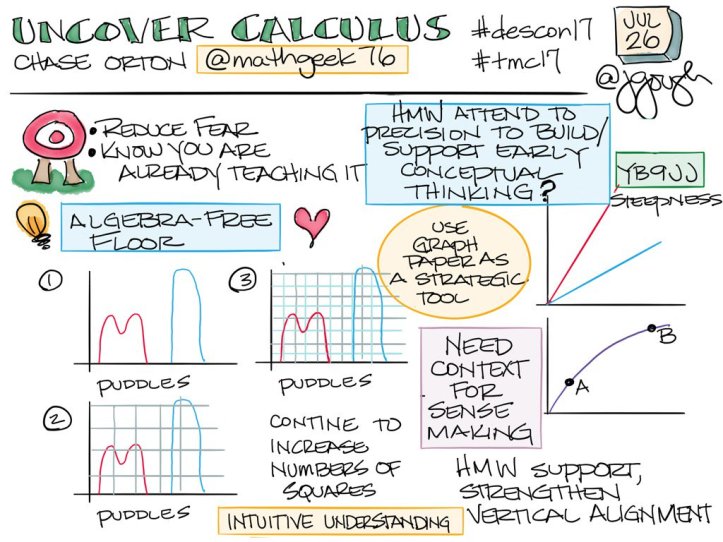 UNCOVER CALCULUS
#descon17
JUL
26
CHASE ORTON @mathgeek76
#tmc17
@jgough
• REDUCE FEAR
• KNOW YOU ARE
ALREADY TEACHING IT
HMW ATTEND TO
PRECISION TO BUILD/
SUPPORT EARLY
CONCEPTUAL
THINKING?
YB9JJ
STEEPNESS
ALGEBRA-FREE
FLOOR
USE
GRAPH
PAPER AS
A STRATEGIC
TOOL
①
PUDDLES
③
PUDDLES
②
PUDDLES
CONTINE TO
INCREASE
NUMBERS OF
SQUARES
NEED
CONTEXT
FOR
SENSE
MAKING
B
A
HMW SUPPORT,
STRENGTHEN
VERTICAL ALIGNMENT
INTUITIVE UNDERSTANDING